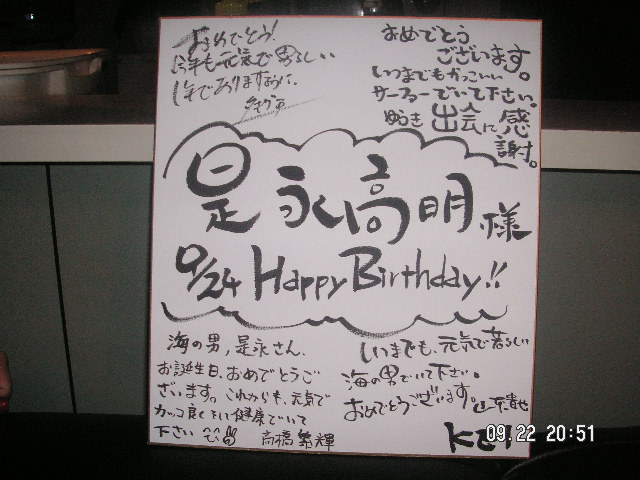 おめでとう!
今年も元気で男らしい
1年でありますように。
おめでとう
ございます。
いつまでもかっこいい
サーファーでいて下さい。
出会に感
謝。
是永高明様
9/24 Happy Birthday!!
海の男,是永さん.
お誕生日.おめでとうご
ざいます。これからも、元気で
カッコ良く 健康でいて
下さい
高橋 輝
いつまでも、元気で若らしい
海の男でいて下さい。
おめでとうございます。
KEI
09.22 20:51